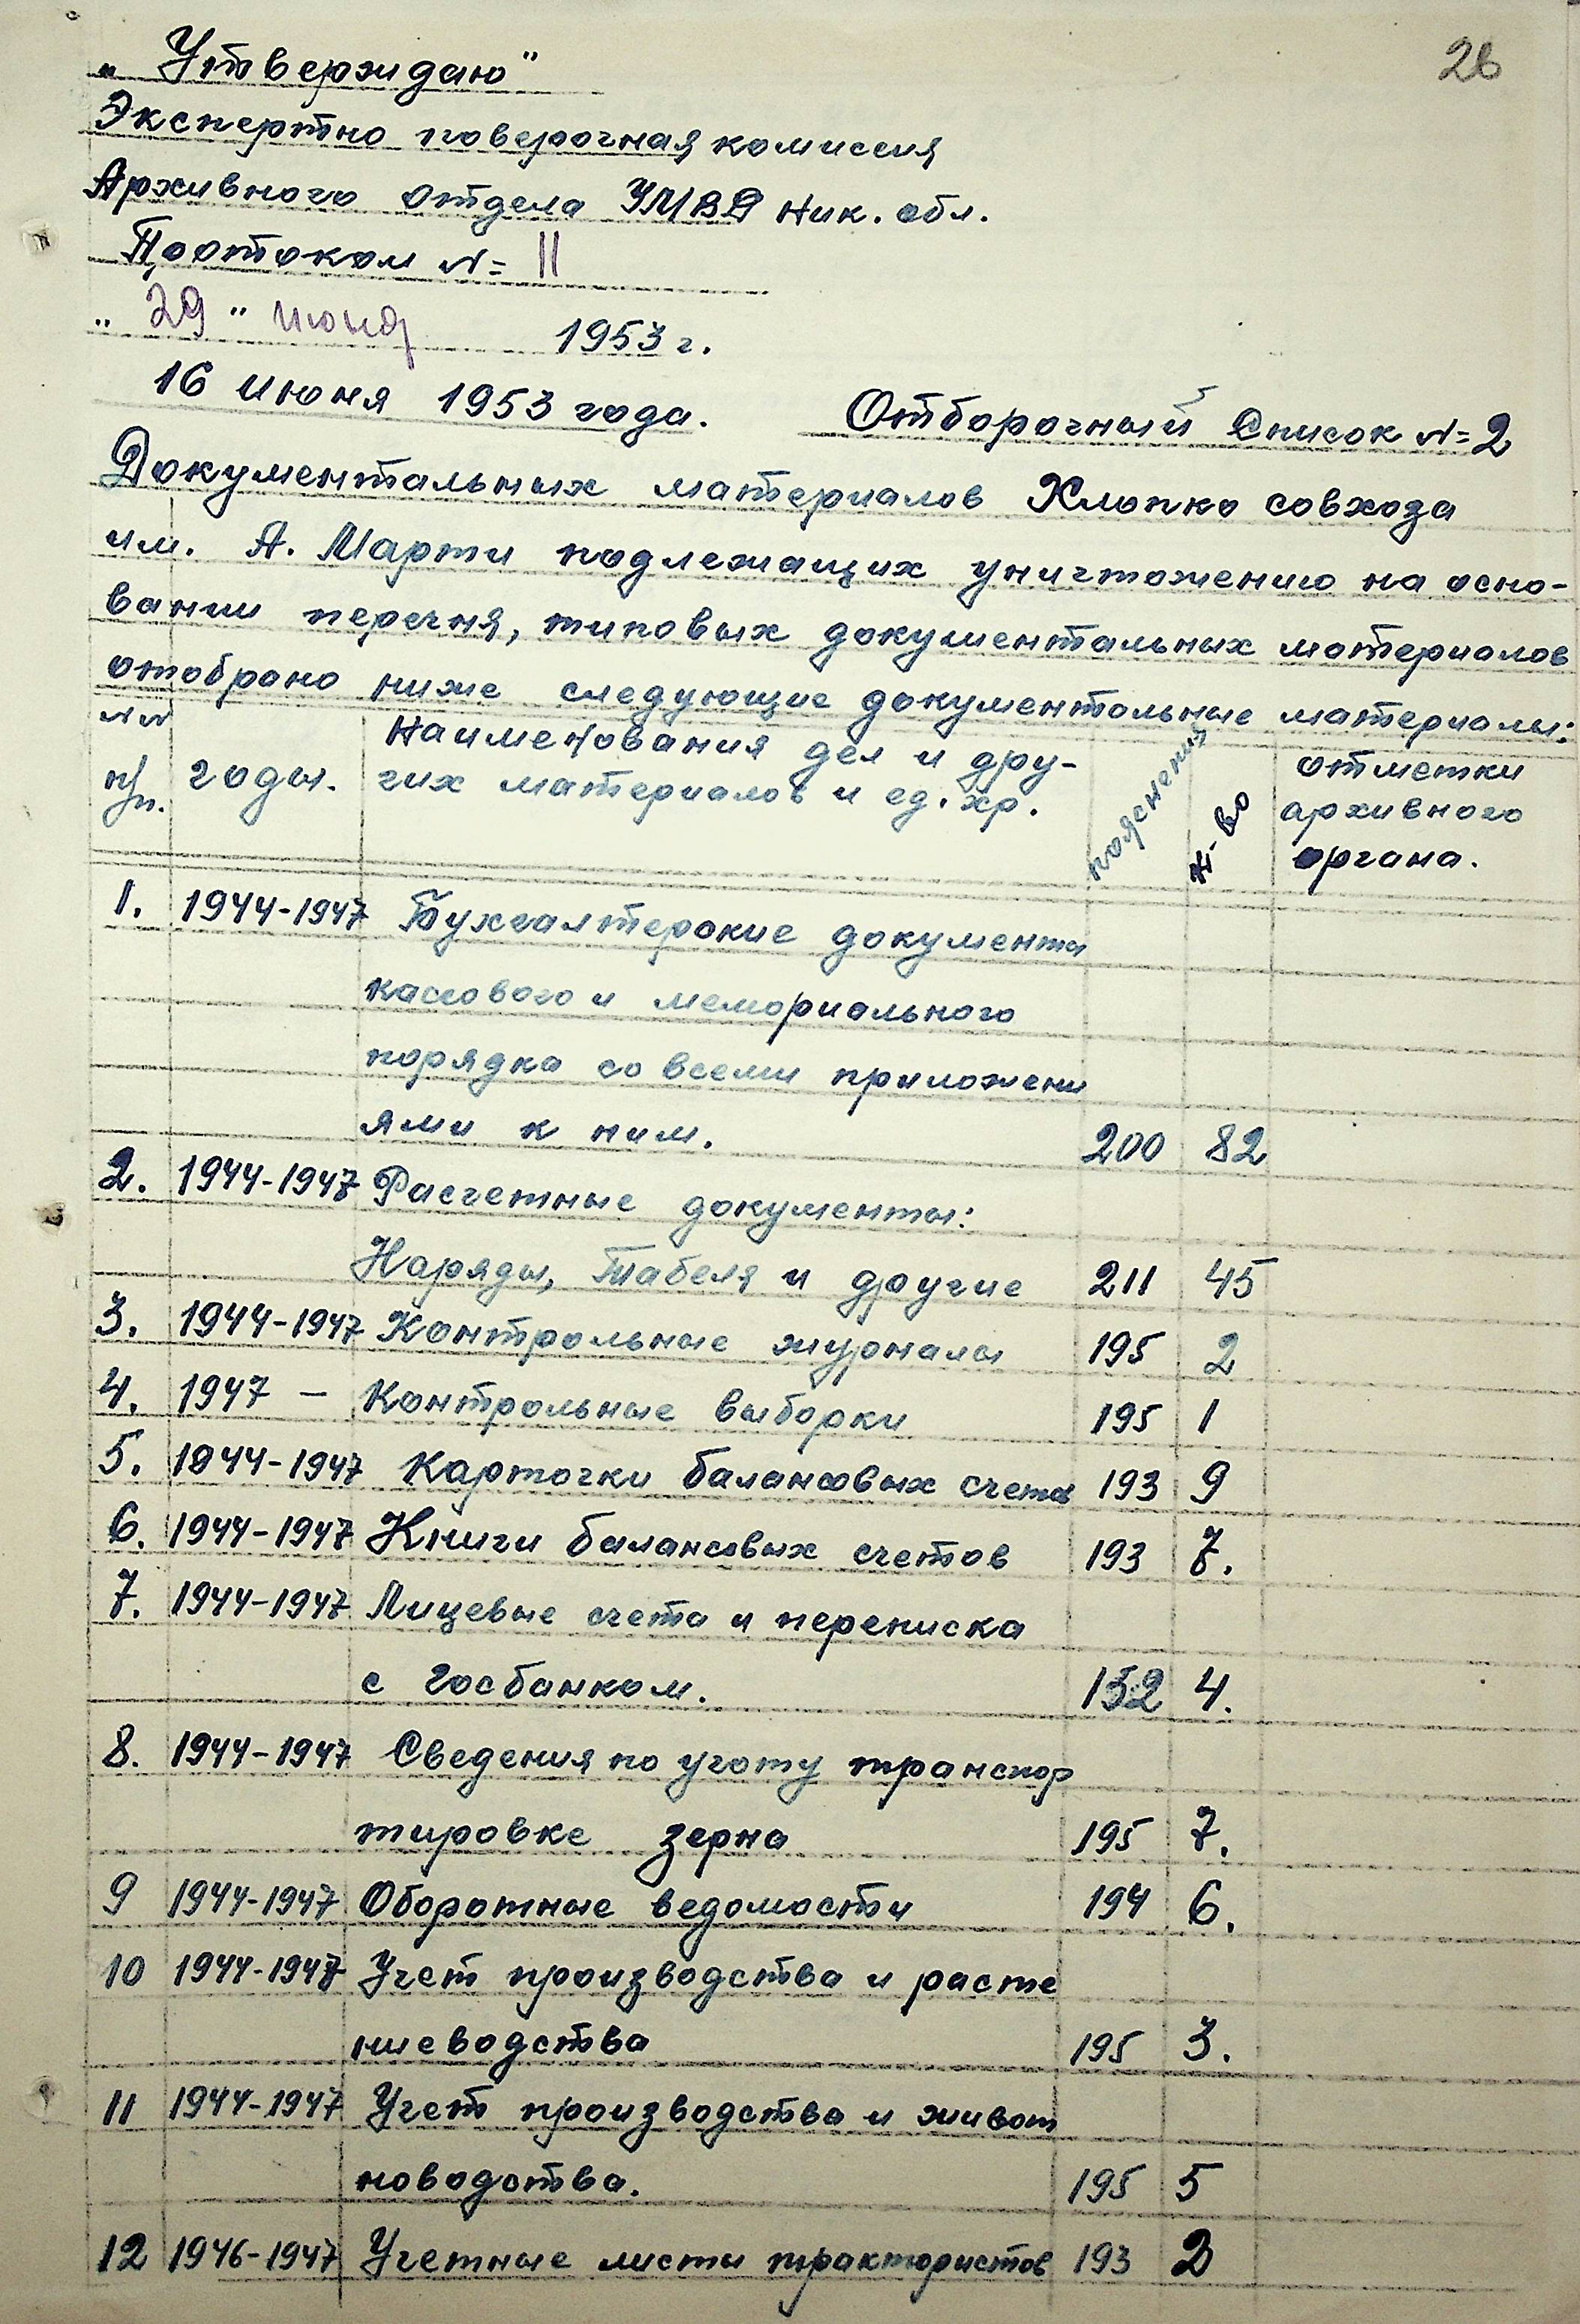 26
„ Утверждаю"
Экспертно поверочная комиссия
Архивного отдела УМВД Ник. обл.
Протоком N= 11
„ 29 " июня 1953 г.
16 июня 1953 года. Отборочный Список N= 2
Документальных материалов Хлопко совхоза
им. А. Марти подлежащих уничтожению на осно-
вании перечня, типовых документальных материалов
отобрано ниже следующие документальные материалы:
NN п/п. годы. Наименования дел и дру- пояснения к-во отметки
гих материалов и ед. хр. архивного
органа.
1. 1944-1947 Бухгалтерские документы
кассового и мемориального
порядка со всеми приложени
ями к ним. 200 82
2. 1944-1947 Расчетные документы:
Наряды, Табеля и другие 211 45
3. 1944-1947 Контрольные журналы 195 2
4. 1947 - Контрольные выборки 195 1
5. 1944-1947 Карточки балансовых счетов 193 9
6. 1944-1947 Книги балансовых счетов 193 7.
7. 1944-1947 Лицевые счета и переписка
с госбанком. 152 4.
8. 1944-1947 Сведения по учоту транспор
тировке зерна 195 7.
9 1944-1947 Оборотные ведомости 194 6.
10 1944-1947 Учет производства и расте
ниеводства 195 3.
11 1944-1947 Учет производства и живот
новодства. 195 5
12 1946-1947 Учетные листы трактористов 193 2